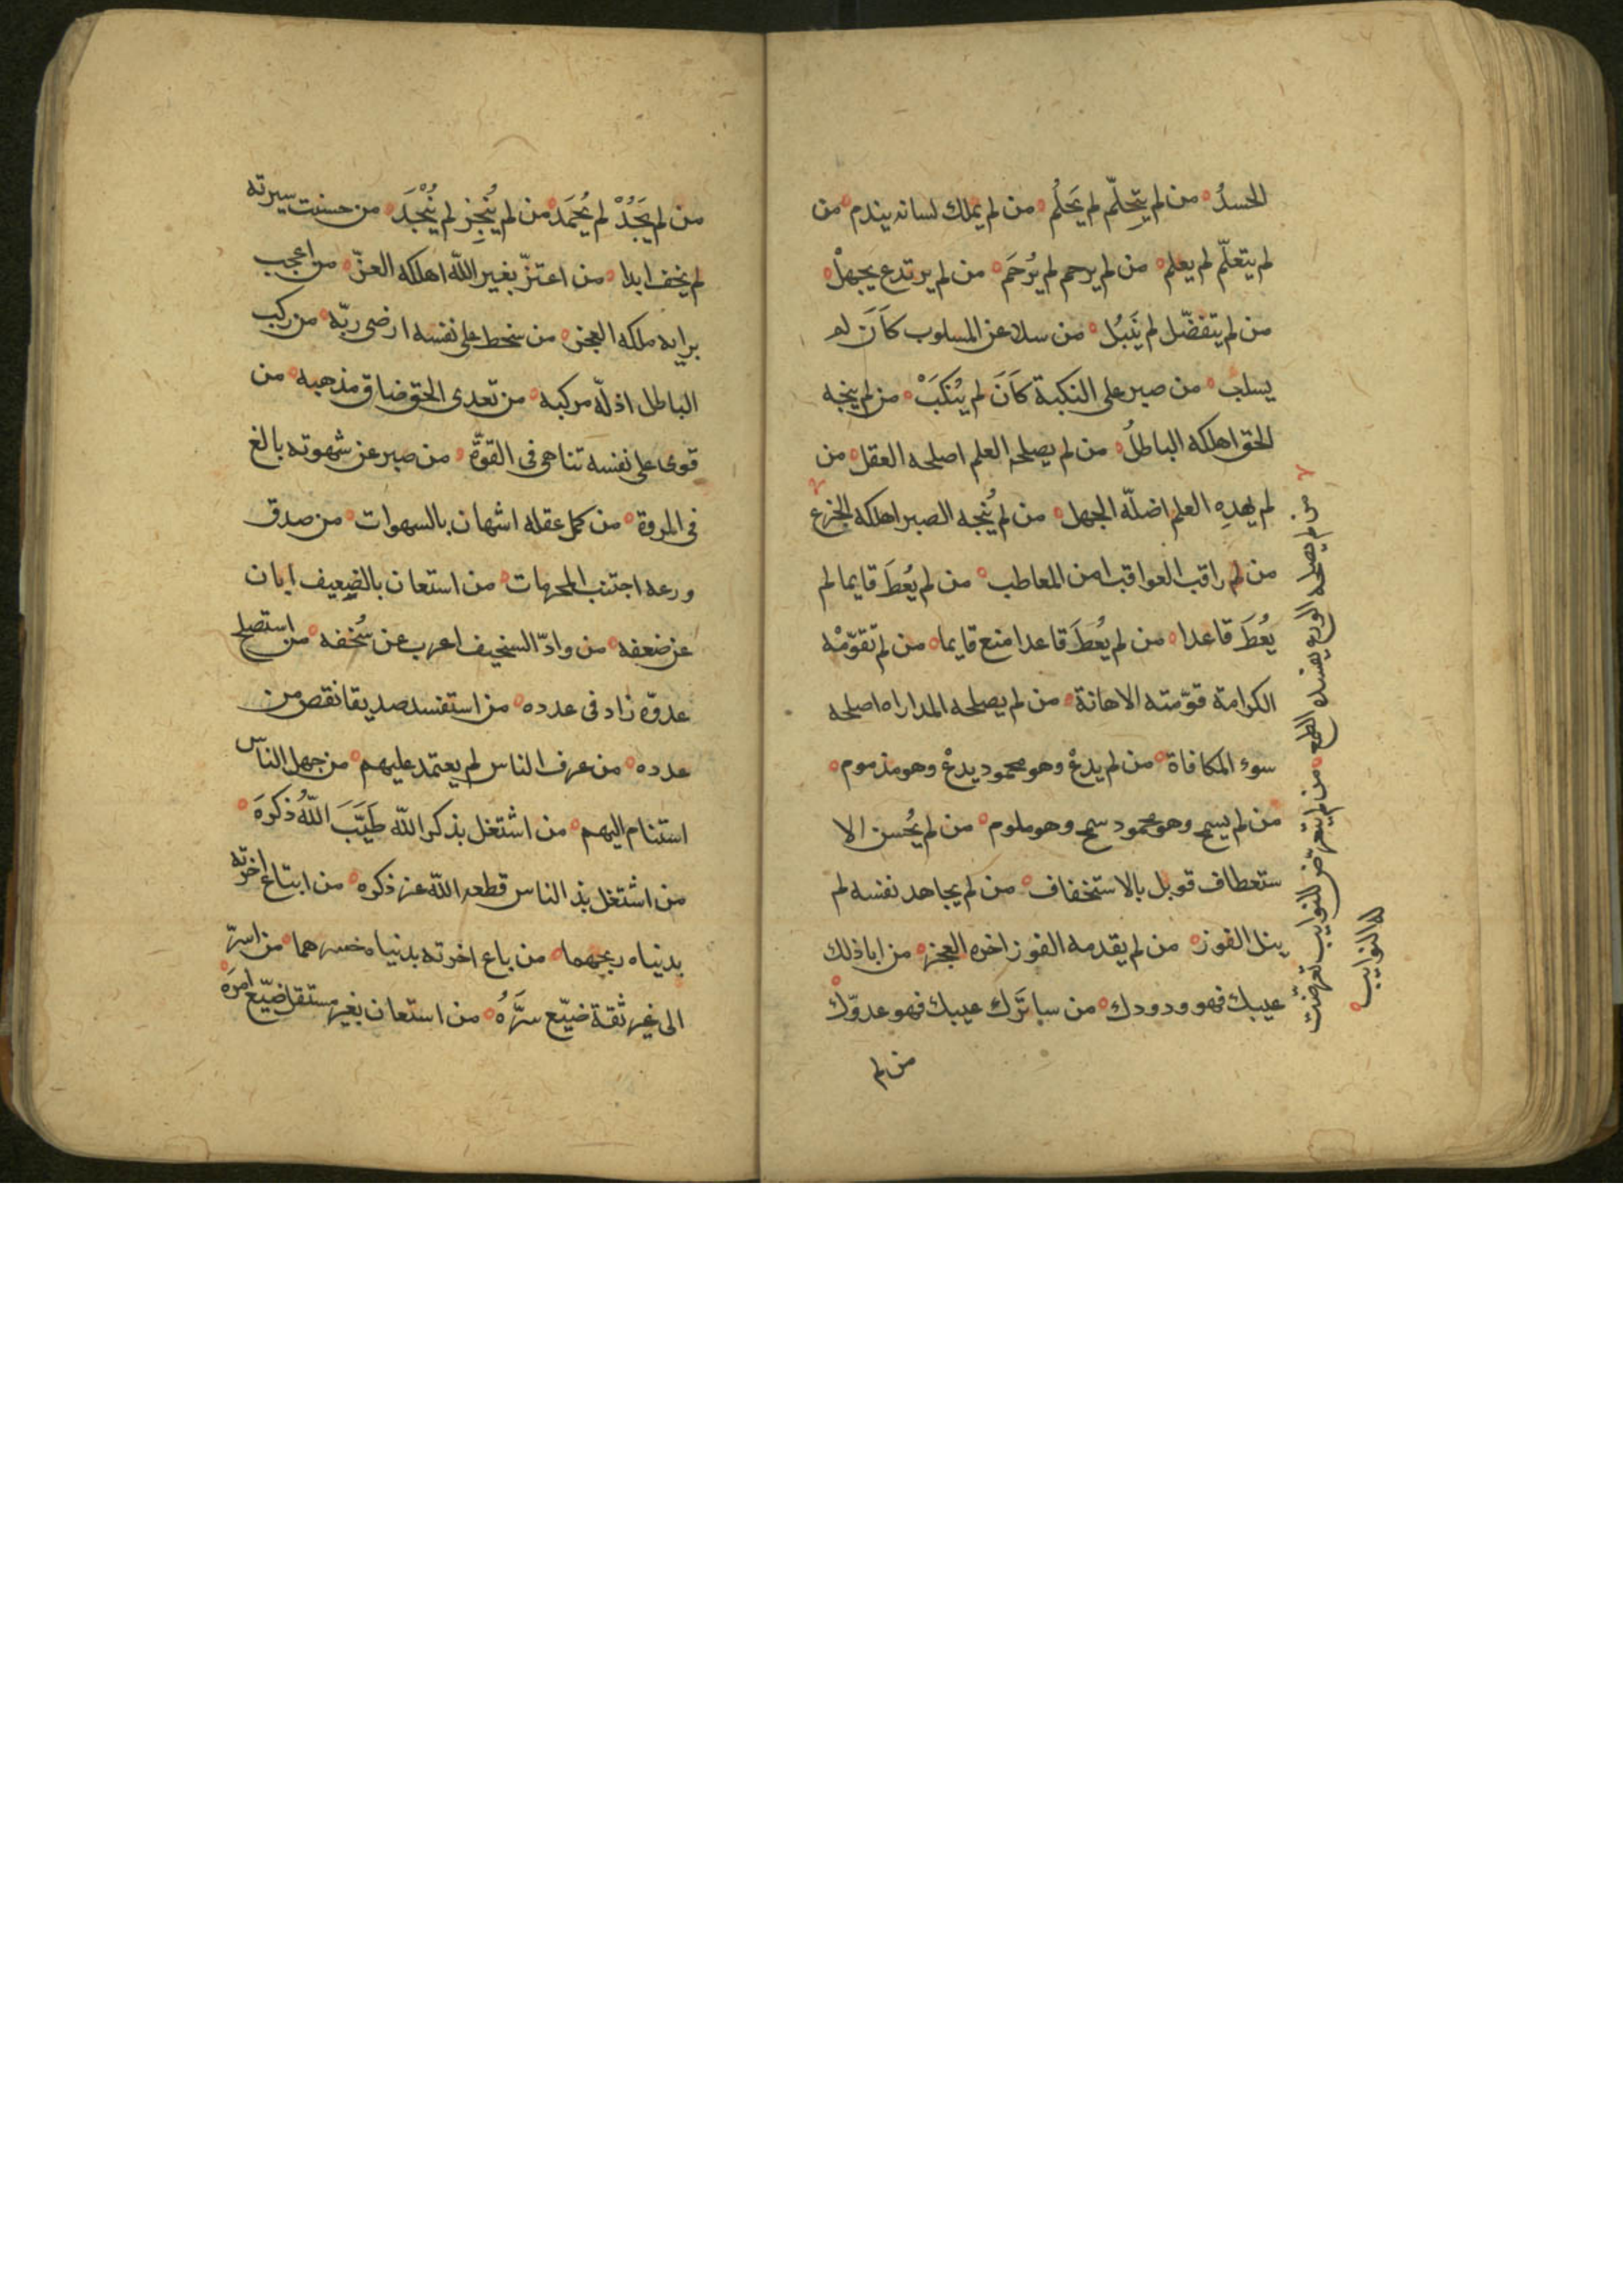 الحسدُ من لم يتحلّم لم يَحلُم من لم يملك لسانه يندم من
لم يتعلّم لم يعلم من لم يرحم لم يُرحَم من لم يرتدع يجهلْ
من لم يتفضّل لم يَنبُل من سلا عن المسلوب كاَنَ لم
يسلب من صبر على النكبة كاَنَ لم يُنكَبَْ من لم ينجه
الحق اهلكه الباطلُ من لم يصلحه العلم اصلحه العقل من
لم يهدِه العلم اضلّه الجهل من لم يُنجه الصبر اهلكه الجزع
من لم راقب العواقب امن المعاطب من لم يُعطَ قايما لم
يُعطَ قاعدا من لم يُعطَ قاعدا منع قايما من لم تقوّمْه
الكرامة قوّمته الاهانة من لم يصلحه المداراه اصلحه
سوء المكافاة من لم يدعْ وهو محمود يدعْ وهو مذموم
من لم يسمح وهو محمود سمح وهو ملوم من لم يُحسن الا
ستعطاف قوبل بالاستخفاف من لم يجاهد نفسه لم
ينل الفوز من لم يقدمه الفوز اخره العجز من ابا ذلك
عيبك فهو ودودك من ساترَك عيبك فهو عدوّك
من لم
من لم يصلحه الورع يفسده الطمع من لم يتعرّض للنوايب تعرّضت
له النوايب
من لم يَجُدْ لم يُحمَد من لم يُنجِز لم يُنْجَدَ من حسنت سيرته
لم يخف ابدا من اعتزّ بغير اللّه اهلكه العزّ من اعجب
برايه ملكه العجز من سخط على نفسه ارضى ربّه من ركب
الباطل اذلّه مركبه من تعدى الحق ضاق مذهبه من
قوى على نفسه تناهى فى القوّة من صبر عن شهوته بالغ
فى المروة من كمل عقله اشهان بالسهوات من صدق
ورعه اجتنب المحرمات من استعان بالضعيف ابان
عن ضعفه من وادّ السخيف اعرب عن سُخفه من استصلح
عدوّه زاد فى عدده من استفسد صديقا نقص من
عدده من عرف الناس لم يعتمد عليهم من جهل الناس
استنام اليهم من اشتغل بذكر اللّه طَيَّبَ اللّهُ ذكرَه
من اشتغل بذ الناس قطعه اللّه عن ذكره من ابتاع اخرته
بدنياه ربحهما من باع اخرته بدنياه خسرهما من اسرّ
الى غير ثقة ضيّع سرَّهُ من استعان بغير مستقل ضيّع امرَه